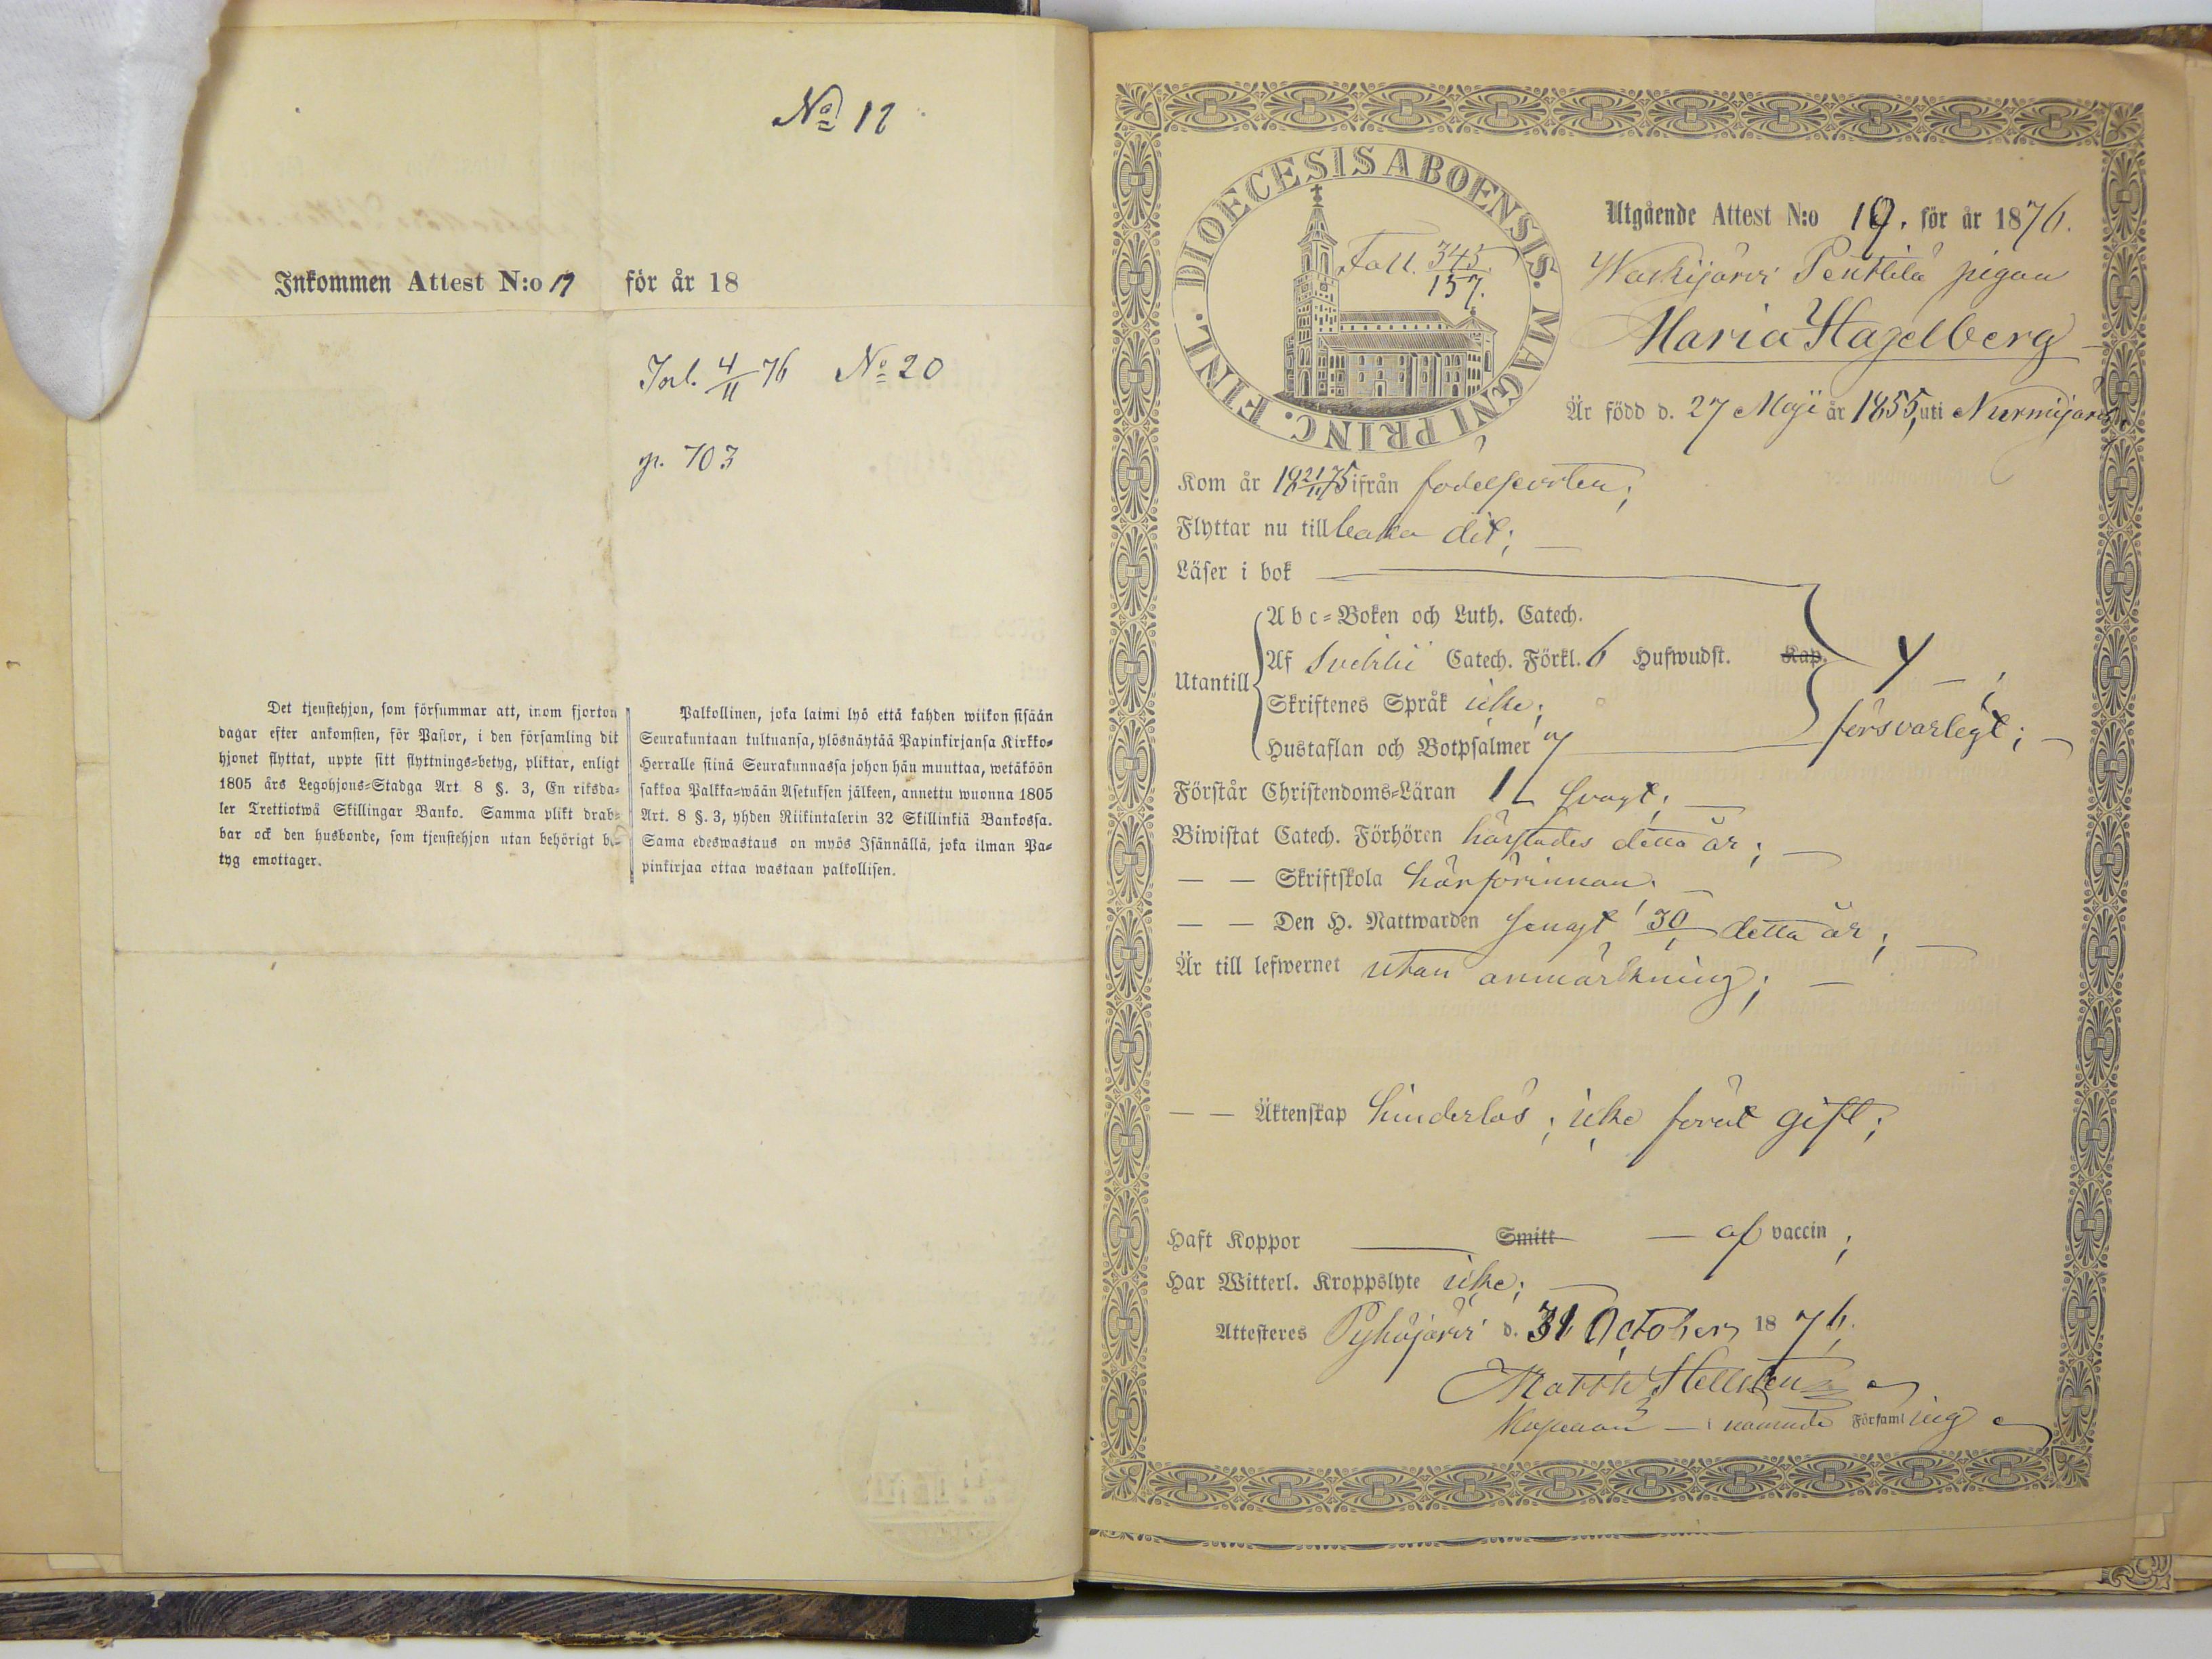 No 12
Inkommen Attest N:o 19 för år 18
Inl. 4/11 76 No 20
p. 703
Det tjenstehjon, som försummar att, inom fjorton
dagar efter ankomsten, för Pastor, i den församling dit
hjonet flyttat, uppte sitt flyttnings=betyg, pliktar, enligt
1805 års Legohjons=Stadga Art 8 §. 3, En riksda=
ler Trettiotwå Skillingar Banko. Samma plikt drab=
bar ock den husbonde, som tjenstehjon utan behörigt be=
tyg emottager.
Palkollinen, joka laimi lyö että kahden wiikon sisään
Seurakuntaan tultuansa, ylösnäytää Papinkirjansa Kirkko=
Herralle siinä Seurakunnassa johon hän muuttaa, wetäköön
sakkoa Palkka=wään Asetuksen jälkeen, annettu wuonna 1805
Art. 8 §. 3, yhden Riikintalerin 32 Skillinkiä Bankossa.
Sama edeswastaus on myös Isännällä, joka ilman Pa=
pinkirjaa ottaa wastaan palkollisen.
DIOECESIS ABOENSIS. MAGNI PRINC. FINL.
Fol. 345.
157.
Utgående Attest N:o 19. för år 1876.
Pentbilä pigan
Maria Hagelberg
Är född d. 27 Maji år 1855, uti Nurmijärvi
Kom år 18 21/11 75 ifrån födelseorten;
Flyttar nu tillbaka dit;
Läser i bok
Abc=Boken och Luth. Catech.
Utantill
Af Svebilii Catech. Förkl. 6 Hufwudst. Kap.
Skriftenes Språk icke;
Hustaflan och Botpsalmer
försvarligt;
Förstår Christendoms=Läran svagt;
Biwistat Catech. Förhören härstädes detta år;
— — Skriftskola härförinnan;
— — Den H. Nattwarden senast 30/ detta år;
Är till lefwernet utan anmärkning;
— — Äktenskap hinderlös; icke förut gift;
Haft Koppor Smitt af vaccin;
Har Witterl. Kroppslyte icke;
Attesteres Pyhäjärvi d. 31 October 1876.
Matth Hellsten
Kapellan i nämnde Församling